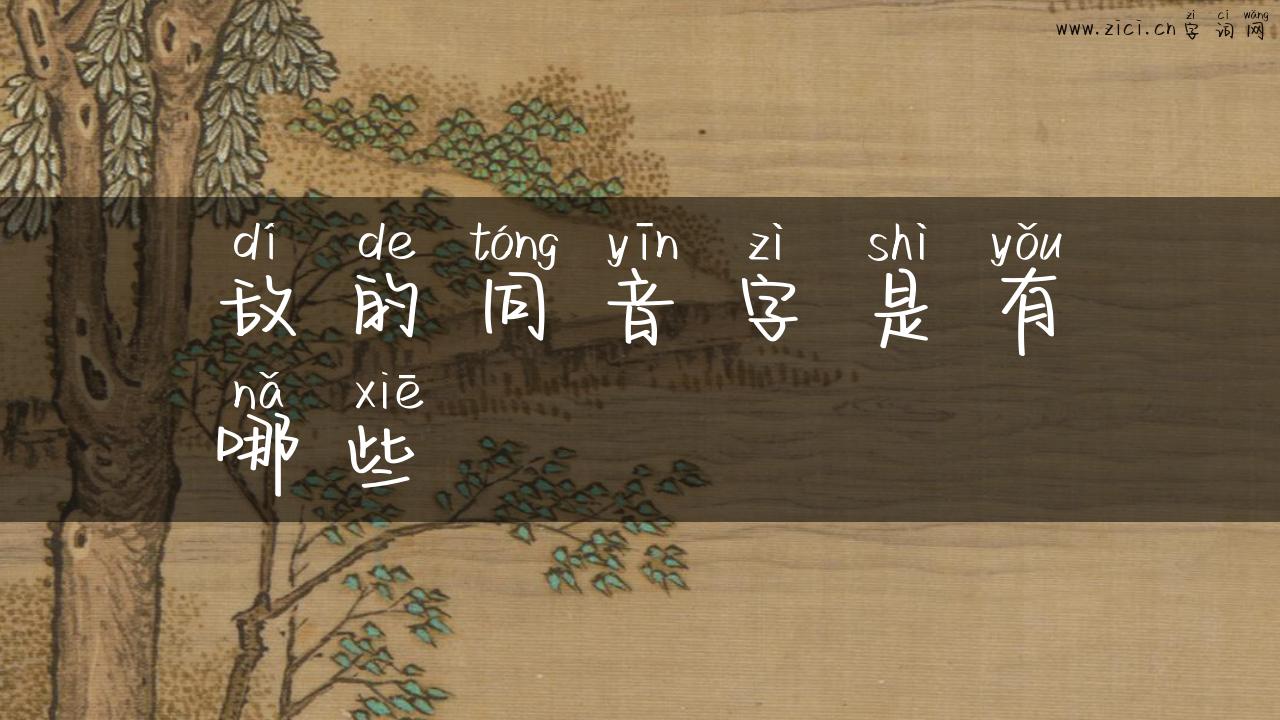 zì cí wǎng
www.zici.cn 字词网
dí de tóng yīn zì shì yǒu
敌的同音字是有
nǎ xiē
哪些